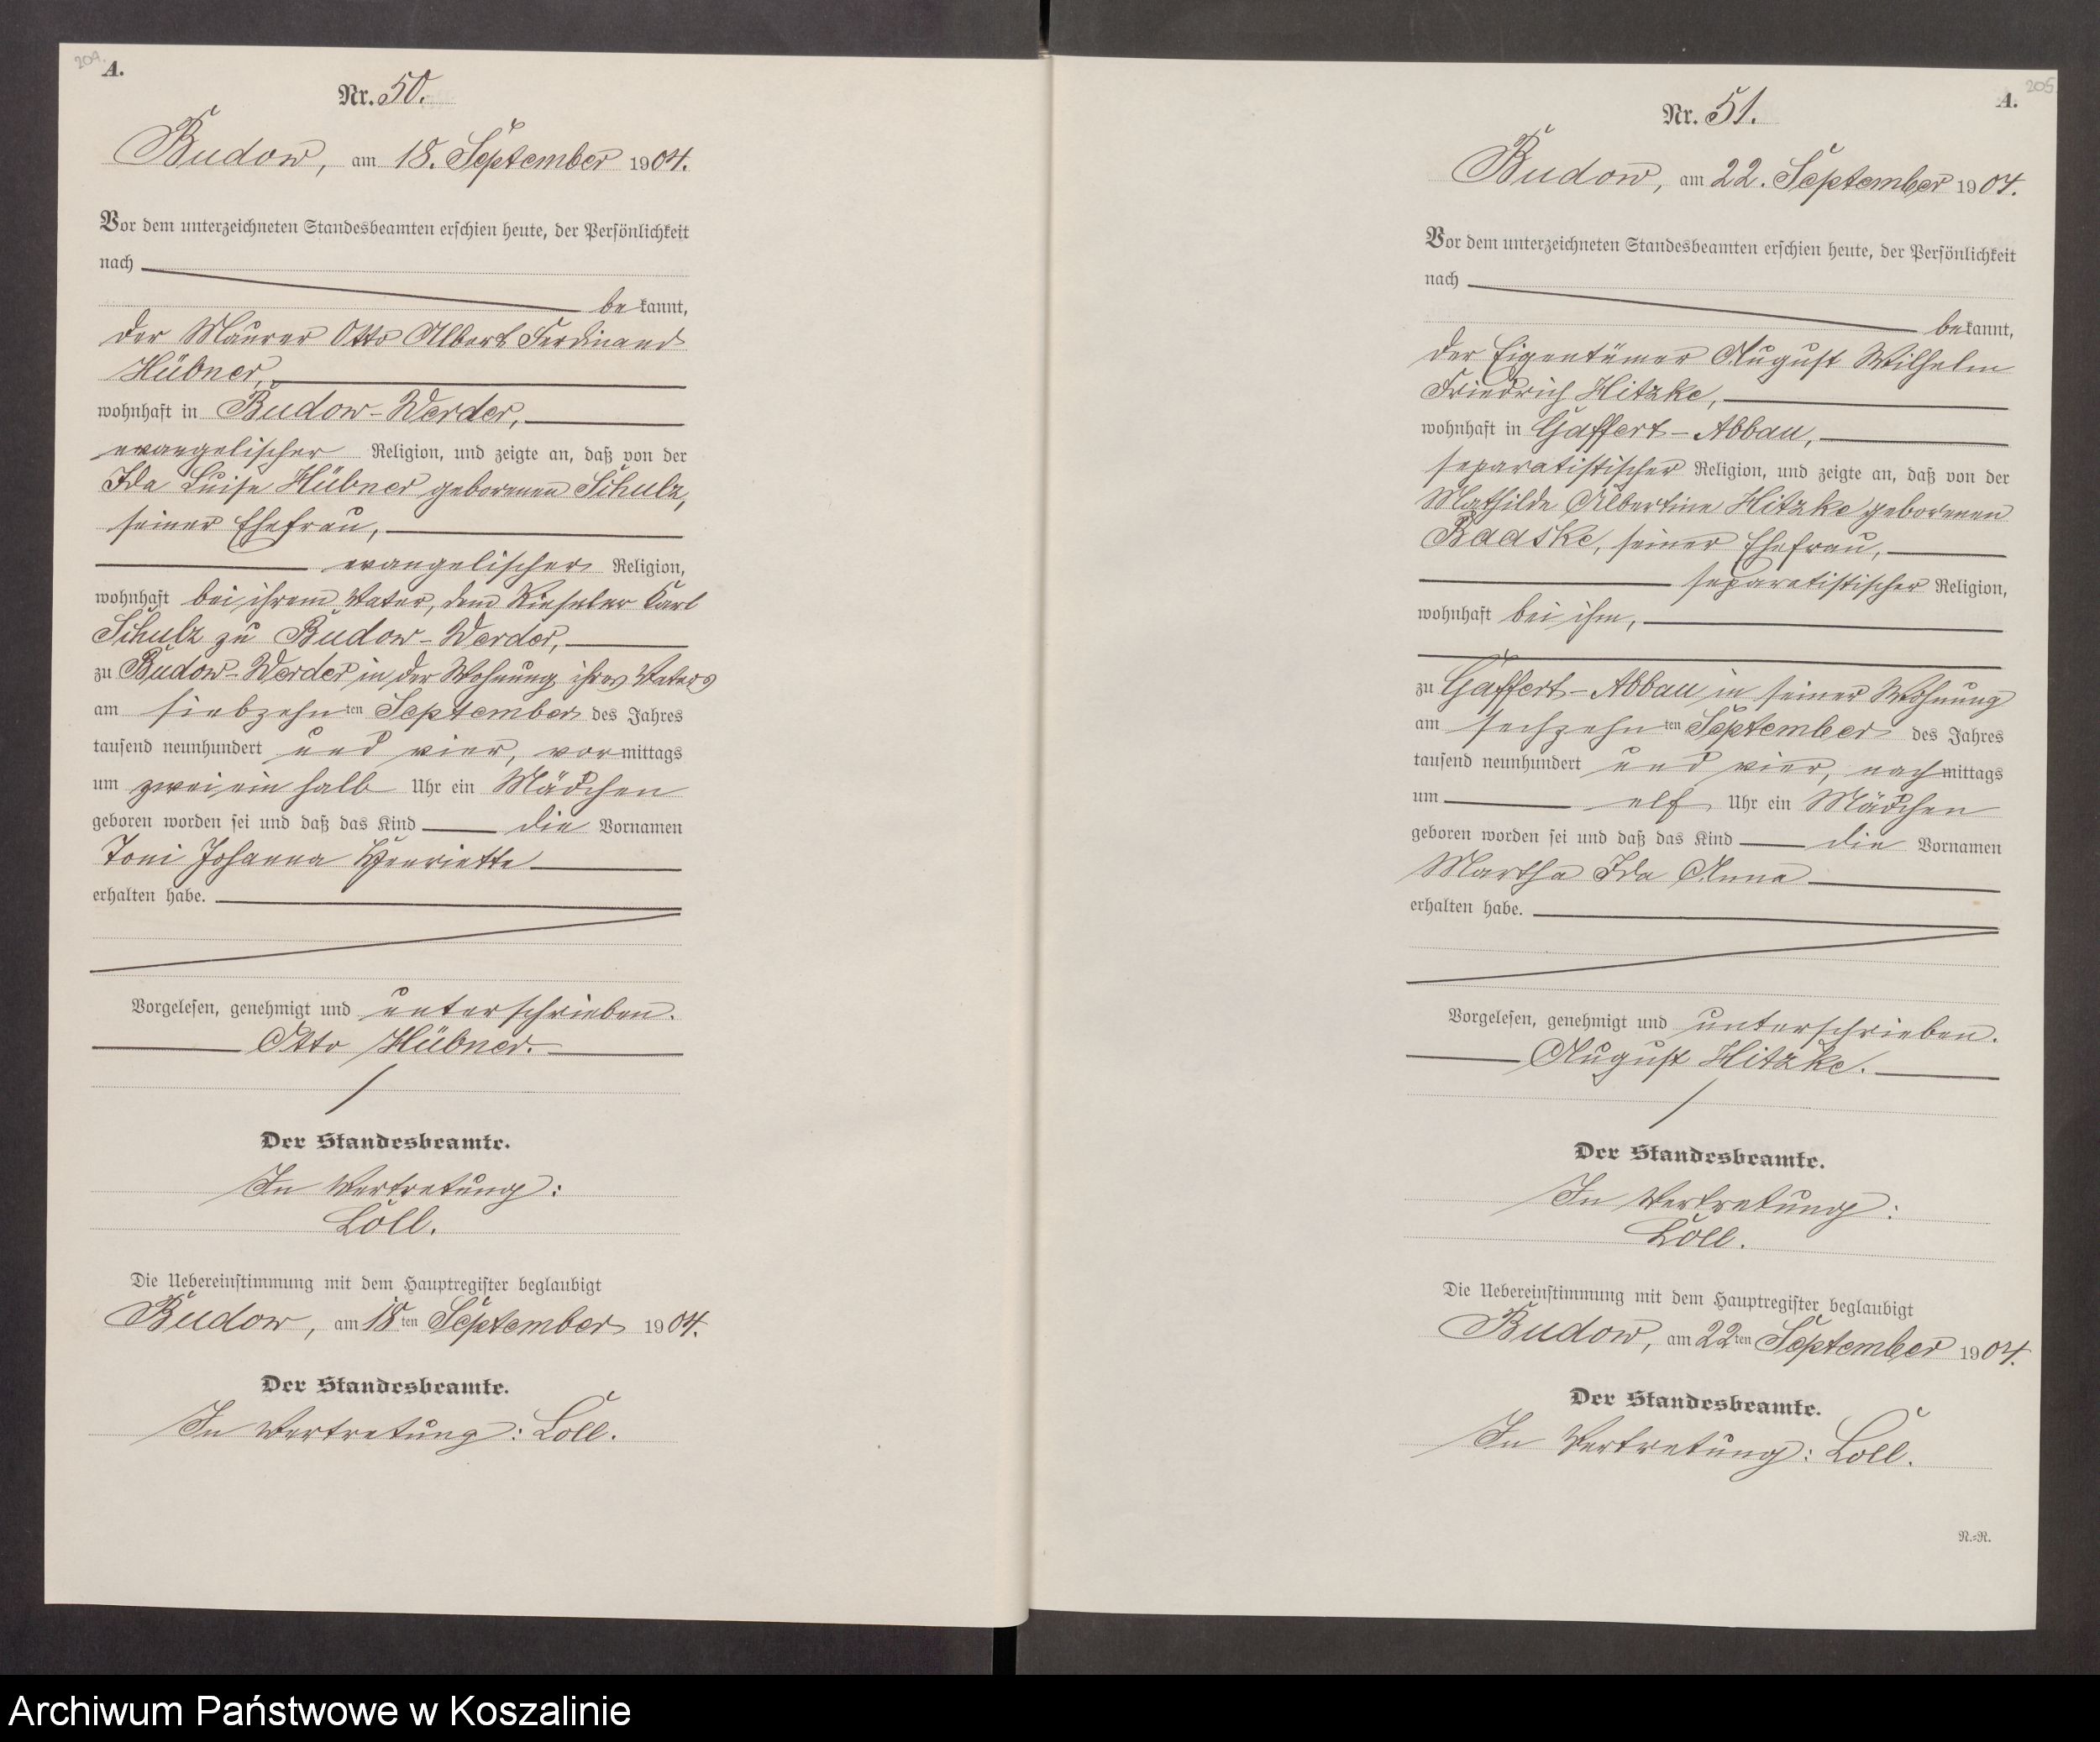 204.
A.
Nr. 50.
Budow, am 18. September 1904.
Vor dem unterzeichneten Standesbeamten erschien heute, der Persönlichkeit
nach
bekannt,
der Maurer Otto Albert Ferdinand
Hübner,
wohnhaft in Budow-Werder,
evangelischer Religion, und zeigte an, daß von der
Ida Luise Hübner geborenen Schulz,
seiner Ehefrau,
evangelischer Religion,
wohnhaft bei ihrem Vater, dem Karl
Schulz zu Budow-Werder,
zu Budow-Werder in der Wohnung ihres Vaters
am siebzehnten September des Jahres
tausend neunhundert und vier, vormittags
um zweieinhalb Uhr ein Mädchen
geboren worden sei und daß das Kind die Vornamen
Toni Johanna Henriette
erhalten habe.
Vorgelesen, genehmigt und unterschrieben.
Otto Hübner.
Der Standesbeamte.
In Vertretung:
Loll.
Die Uebereinstimmung mit dem Hauptregister beglaubigt
Budow, am 18ten September 1904.
Der Standesbeamte.
In Vertretung: Loll.
205
A.
Nr. 51.
Budow, am 22. September 1904.
Vor dem unterzeichneten Standesbeamten erschien heute, der Persönlichkeit
nach
bekannt,
der Eigentümer August Wilhelm
Friedrich Hitzke,
wohnhaft in Gaffert-Abbau,
separatistischer Religion, und zeigte an, daß von der
Mathilde Albertine Hitzke geborenen
Radske, seiner Ehefrau,
separatistischer Religion,
wohnhaft bei ihm,
zu Gaffert-Abbau in seiner Wohnung
am sechzehnten September des Jahres
tausend neunhundert und vier, nachmittags
um elf Uhr ein Mädchen
geboren worden sei und daß das Kind die Vornamen
Martha Ida Anna
erhalten habe.
Vorgelesen, genehmigt und unterschrieben.
August Hitzke.
Der Standesbeamte.
In Vertretung:
Loll.
Die Uebereinstimmung mit dem Hauptregister beglaubigt
Budow, am 22ten September 1904.
Der Standesbeamte.
In Vertretung: Loll.
N.-R.
Archiwum Państwowe w Koszalinie